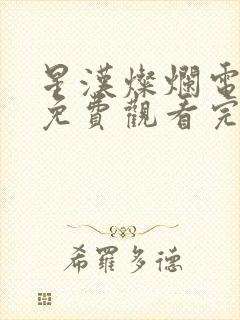 星漢燦爛電
免費觀看完
希羅多德